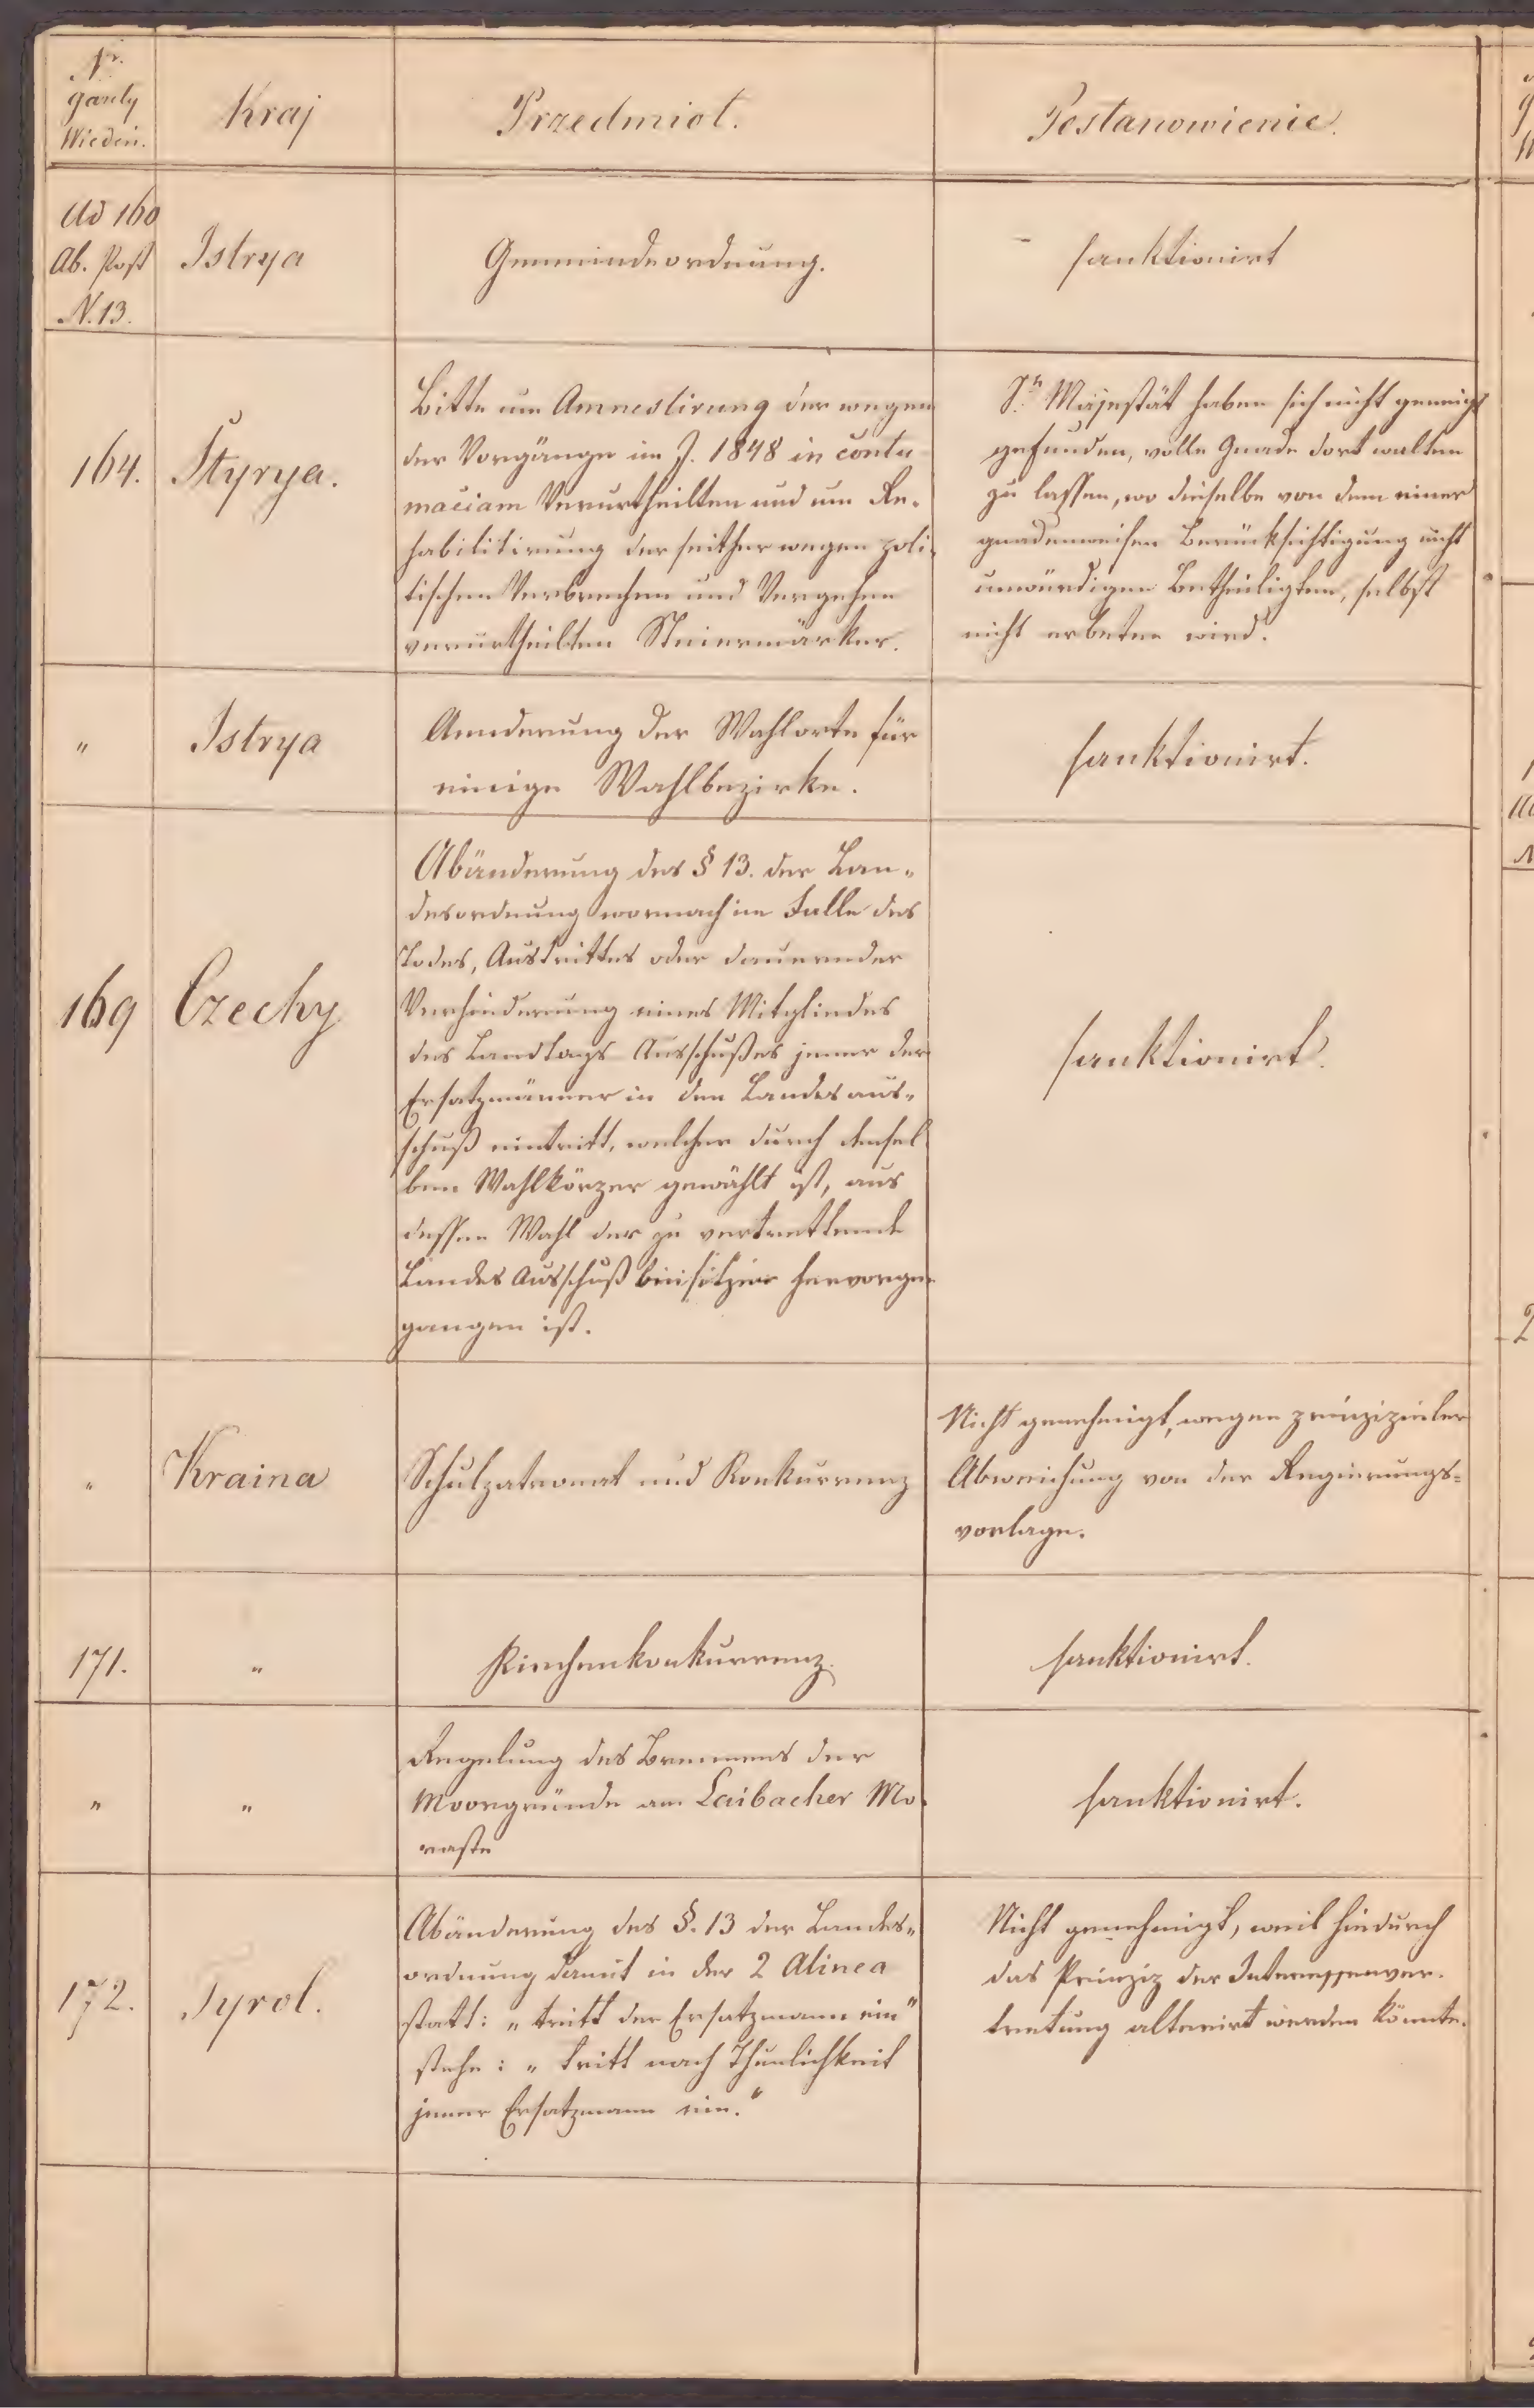 Nr.
gazety
Wiedeń.
Kraj
Przedmiot.
Postanowienie.
Ad 160
Ab. Post
N. 13.
Istrya
Gemeindeordnung.
sanktionirt
164.
Styrya.
Bitte um Amnestirung der wegen
der Vorgänge im J. 1848 in contu
maciam Verurtheilten und um Re-
habilitirung der seither wegen poli-
tischen Verbrechen und Vergehen
verurtheilten Steiermärker.
Sr. Majestät haben sich nicht geneigt
gefunden, volle Gnade dort walten
zu lassen, wo dieselbe von dem einer
gnadenweisen Berücksichtigung nicht
unwürdigen Betheiligten, selbst
nicht erbeten wird.
"
Istrya
Aenderung der Wahlorte für
einige Wahlbezirke.
sanktionirt.
169
Czechy
Abänderung des § 13. der Lan-
desordnung wornach im Falle des
Todes, Austrittes oder dauernder
Verhinderung eines Mitgliedes
des Landtags Ausschußes jener der
Ersatzmänner in den Landesaus-
schuß eintritt, welcher durch densel
ben Wahlkörper gewählt ist, aus
dessen Wahl der zu vertrettende
Landes Ausschuß beisitzer hervorge-
gangen ist.
sanktionirt.
"
Kraina
Schulpatronat und Konkurrenz
Nicht genehmigt, wegen prinzipieler
Abweichung von der Regierungs-
vorlage.
171.
"
Kirchenkonkurrenz.
sanktionirt.
"
"
Regelung des Brennens der
Moorgründe am Laibacher Mo-
raste
sanktionirt.
172.
Tyrol.
Abänderung des §. 13 der Landes-
ordnung damit in der 2 Alinea
statt: „tritt der Ersatzmann ein"
stehe: „tritt nach Thunlichkeit
jener Ersatzmann ein."
Nicht genehmigt, weil hiedurch
das Prinzip der Interessenver-
tretung alterirt werden könnte.